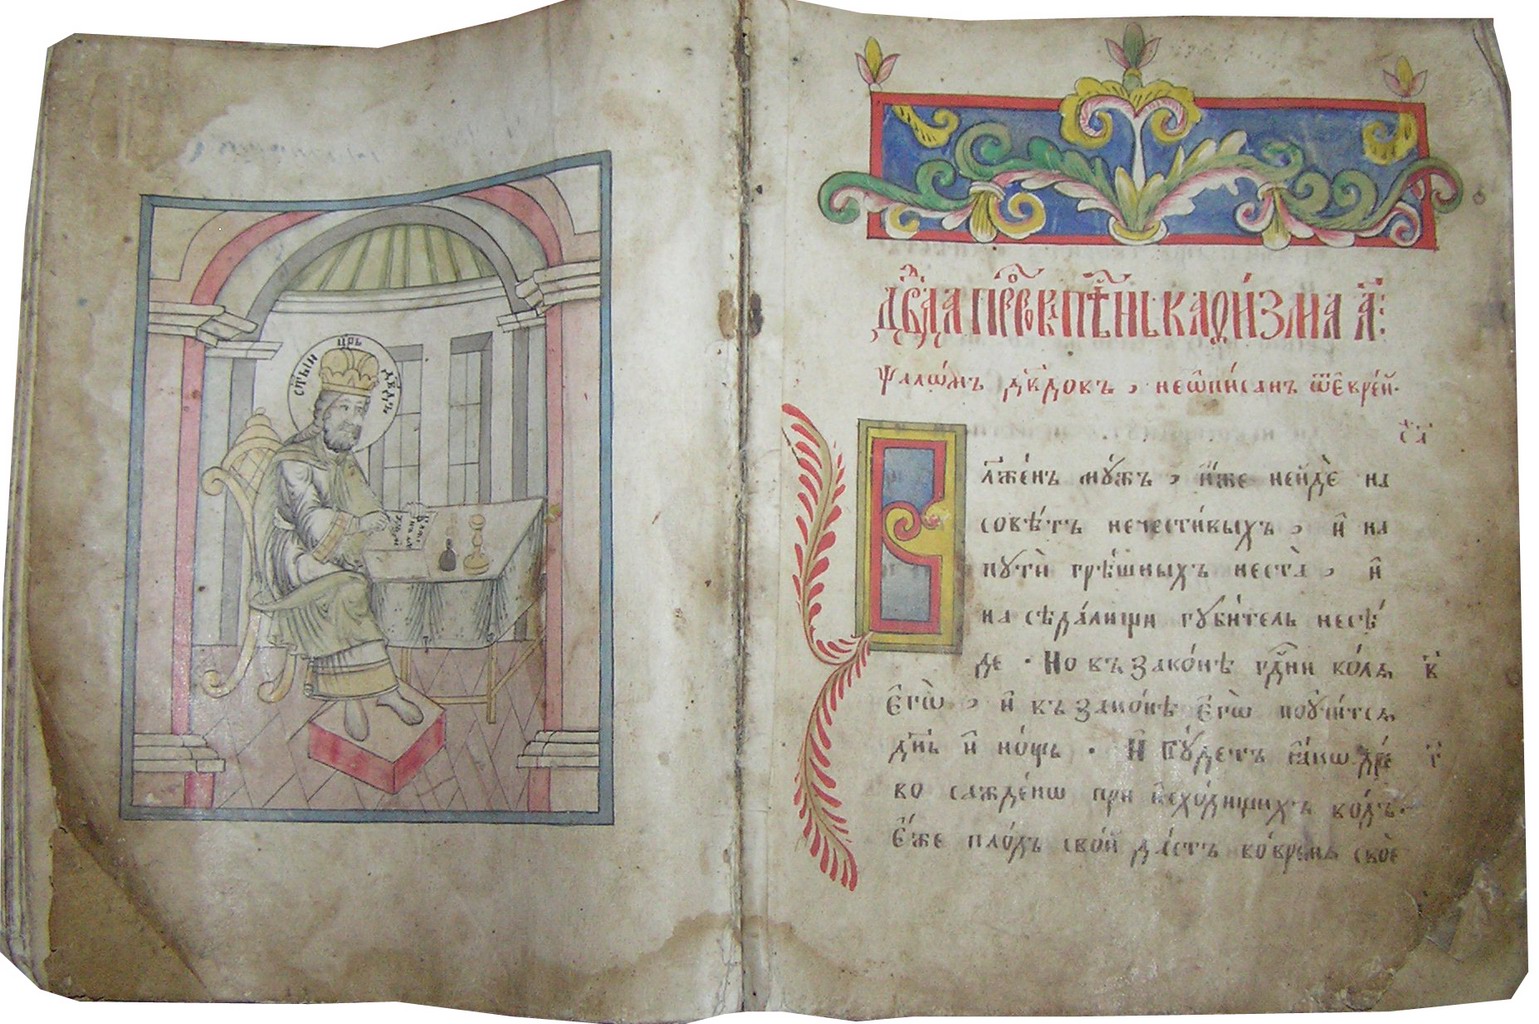 ст҃ын црь дв҃дъ
Дв҃да прⷪ҇рока пѣ́снь каѳи́зма а҃:
Ѱало́мъ дв҃довъ , не ѡ҆пи́санъ ѿ є҆врє́й.
с҃а
Бл҃же́нъ му́жъ , и҆́же не и҆́де на
совѣ́тъ нечести́выхъ , и҆ на
пути̑ грѣ́шныхъ не ста̀ , и҆
на сѣда́лищи губи́тель не сѣ́
де . Но въ зако́нѣ гд҃ни во́лѧ в҃
є҆гѡ̀ , и҆ въ зако́нѣ є҆гѡ̀ поучи́тсѧ
дн҃ь и҆ но́щь . И҆ бу́детъ ꙗ҆́кѡ дре́ г҃
во сажде́нѡ при и҆схо́дищихъ во́дъ.
є҆́же пло́дъ сво́й да́стъ во вре́мѧ своѐ